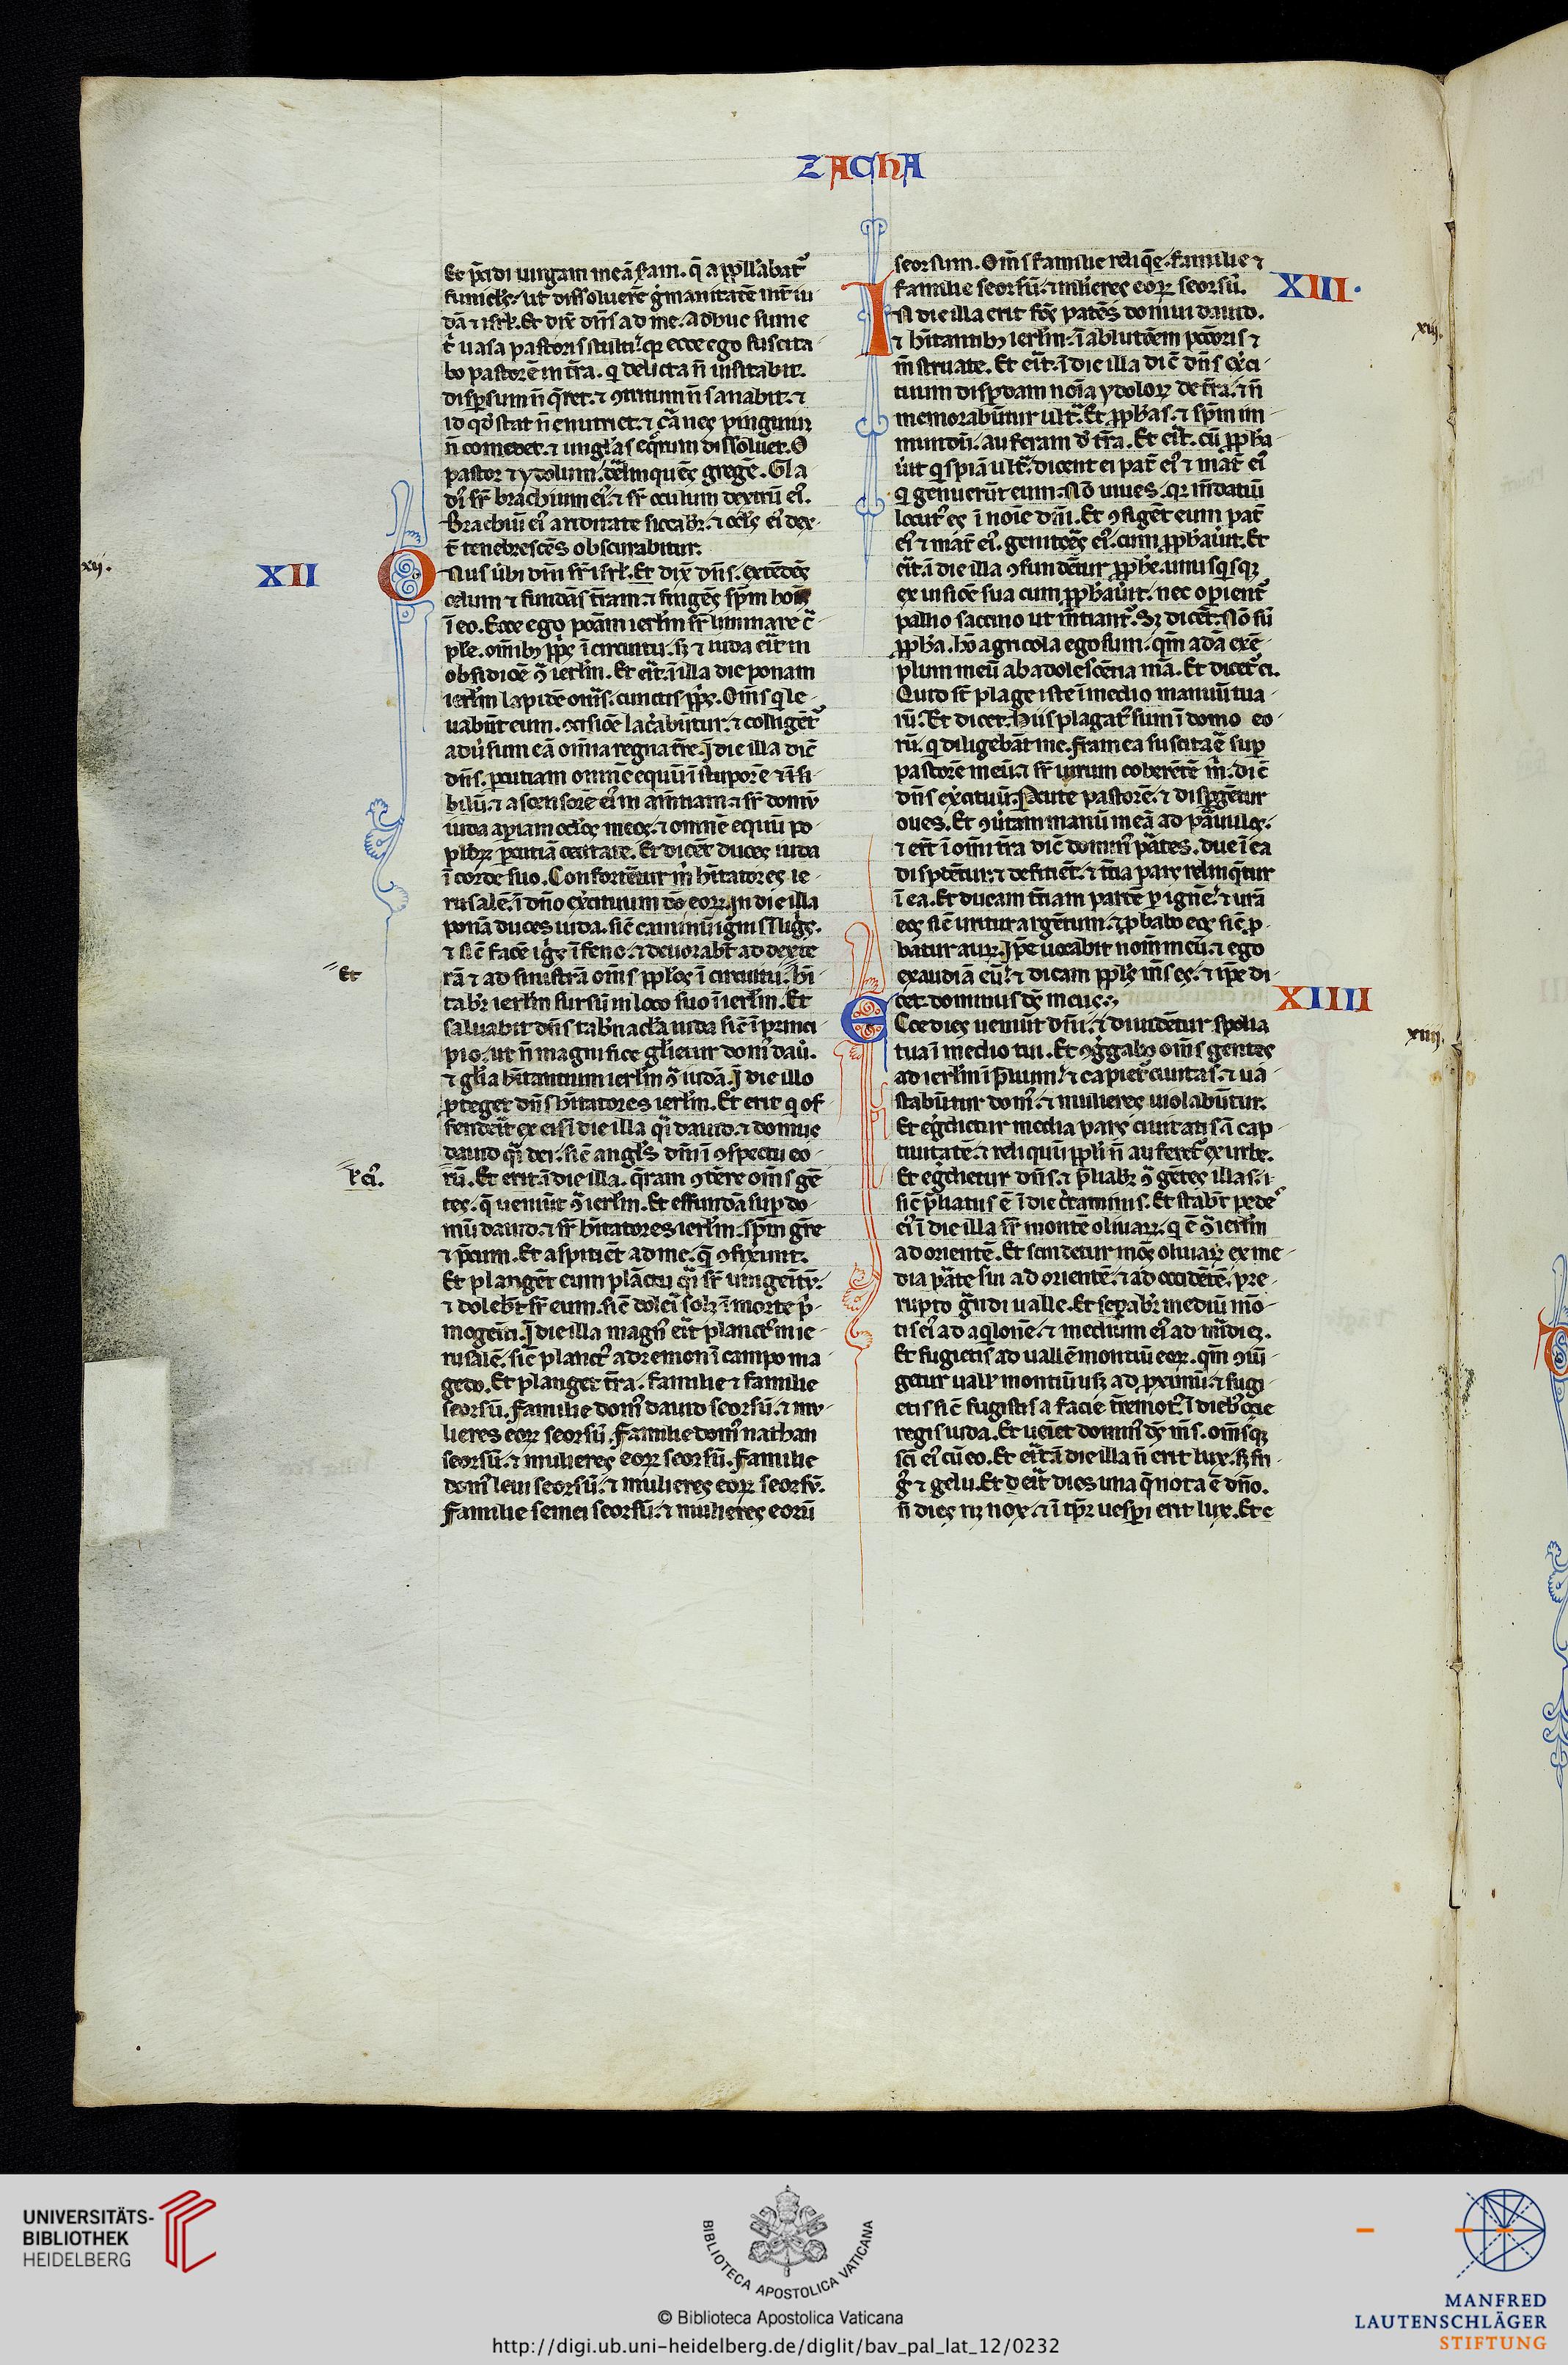 ZACHA
Et p̄cidi uirgam meā scđam. q̄ appellabatᷣ
funiculꝰ. ut dissoluerē gͥmanitatē int̄ iu-
dā ⁊ isrƚ. Et dix̄ dn̄s ad me. Adhuc sume
t͛ uasa pastoris stulti. qꝛ ecce ego suscita-
bo pastorē in tr̄a. qͥ delicta n̄ uisitabit.
dispersum n̄ q̄ret. ⁊ ꝯtritum n̄ sanabit. ⁊
id qđ stat n̄ enutriet. ⁊ carnes pinguiū
n̄ comedet. ⁊ ungl̄as eoꝝ dissoluet. O
pastor ⁊ ydolum. derelinquēs gregē. Gla-
diꝰ sr̄ brachium eiꝰ. ⁊ sr̄ oculum dextrū eiꝰ.
Brachiū eiꝰ ariditate siccabit᷑. ⁊ oculꝰ eiꝰ dex-
t̄ tenebrescēs obscurabitur.
XII
xij.
Onus ūbi dn̄i sr̄ isrƚ. Et dix̄ dn̄s. extēdēs
celum ⁊ fundās tr̄am. ⁊ fingēs spm̄ hoīs
ī eo. Ecce ego ponā ierl̄m sr̄ liminare c̄-
ple. omībꝫ ppl̄is ī circuitu. sꝫ ⁊ iuda erit in
obsidiōe ꝯ̄ ierl̄m. Et erit ī illa die ponam
ierl̄m lapidē oneris. cunctis ppl̄is. Om̄s qͥ le-
uabūt eum. ꝯcisiōe lac̄abūtur. ⁊ colligētᷣ
adūsum eā omnia regna tr̄e. Ī die illa dic̄
dn̄s. percutiam omnē equū ī stuporē ⁊ asc̄-
sorē eiꝰ in amentiam. ⁊ sr̄ domū
iuda apiam oculos meos. ⁊ omnē equū po-
puloꝝ percutiā cecitate. Et dicēt duces iuda
ī corde suo. Confortētur m̄ hītatores ie-
rusalē. ī dn̄o exercituum deo eoꝝ. In die illa
ponā duces iuda. sic̄ caminū ignis ī lignis.
⁊ sic̄ facē ignis ī feno. ⁊ deuorabūt ad dexte-
rā ⁊ ad sinistrā om̄s ppl̄os ī circuitu. hī-
Et
tabit᷑ ierl̄m sursū in loco suo ī ierl̄m. Et
saluabit dn̄s tabn̄acl̄a iuda sic̄ ī princi-
pio. ut n̄ magnifice gl̄ietur domꝰ dauid.
⁊ gl̄ia hītantium ierl̄m ꝯ̄ iudā. Ī die illo
ꝓteget dn̄s hītatores ierl̄m. Et erit qͥ of-
fenderit ex eis ī die illa qͣi dauid. ⁊ domus
dauid qͣi dei. sic̄ angl̄s dn̄i ī ꝯspectu eo-
rū. Et erit ī die illa. qͣram ꝯt̄ere om̄s gē-
tes. q̄ ueniūt ꝯ̄ ierl̄m. Et effundā suꝑ do-
mū dauid. ⁊ sr̄ hītatores ierl̄m. spm̄ gr̄e
⁊ p̄cum. Et aspiciēt ad me. quē ꝯfixerunt.
Et plangēt eum plāctu qͣi sr̄ unigenitū.
⁊ dolebūt sr̄ eum. sic̄ doleri solꝫ ī morte pͥ-
mogeniti. Ī die illa magnꝰ erit planctꝰ in ie-
rusalē. sic̄ planctꝰ adremon ī campo ma-
gedo. Et planget tr̄a. familie ⁊ familie
seorsū. familie domꝰ dauid seorsū. ⁊ mu-
lieres eoꝝ seorsū. Familie domꝰ nathan
seorsū. ⁊ mulieres eoꝝ seorsū. Familie
domꝰ leui seorsū. ⁊ mulieres eoꝝ seorsū.
Familie semei seorsū. ⁊ mulieres eorū
seorsum. Om̄s familie reliq̄e. familie ⁊
familie seorsū. ⁊ mulieres eoꝝ seorsū.
XIII.
xiij.
In die illa erit fōs patēs domui dauid.
⁊ hītantibꝫ ierl̄m. ī ablutōem pctōris ⁊
mn̄struate. Et erit. ī die illa dic̄ dn̄s exerci-
tuum disperdam noīa ydoloꝝ de tr̄a. ⁊ n̄
memorabūtur ultͣ. Et ꝓph̄as. ⁊ spm̄ im-
mundū. auferam de tr̄a. Et erit. cū ꝓpha-
uit͛ qͥspiā ultͣ. dicent ei pat̄ eiꝰ ⁊ mat̄ eiꝰ
qͥ genuerūt eum. Nō uiues. qꝛ mēdatiū
locutꝰ es ī noīe dn̄i. Et ꝯfiget eum pat̄
eiꝰ ⁊ mat̄ eiꝰ. genitores eiꝰ. cum ꝓphauit͛. Et
erit. ī die illa ꝯfundētur ꝓphe. unusqͥsqꝫ
ex uisiōe sua cum ꝓphauit͛. nec opientᷣ
pallio saccino ut mētiantᷣ. Sꝫ dicet. Nō sū
ꝓpha. hō agricola ego sum. qm̄ adā exē-
plum meū ab adolescētia mea. Et dicetᷣ ei.
Quid st̄ plage iste ī medio manuū tua-
rū. Et dicet. Hiis plagatꝰ sum ī domo eo-
rū. qͥ diligebāt me. Framea suscitare suꝑ
pastorē meū. ⁊ sr̄ uirum coherētē m̄. dic̄
dn̄s exercituū. Percute pastorē. ⁊ dispergētur
oues. Et ꝯuertam manū meā ad paruulos.
⁊ erūt ī omni tr̄a dic̄ dominꝰ partes. due ī ea
disperdētur. ⁊ deficiēt. ⁊ tertia pars relinqͤtur
ī ea. Et ducam tertiam partē ꝑ ignē. ⁊ urā
eos sic̄ uritur argētum. ⁊ ꝓbabo eos sic̄ ꝓ-
batur auꝝ. Ip̄e uocabit nomen meū. ⁊ ego
exaudiā eū. ⁊ dicam ppl̄s mͤs es. ⁊ ip̄e di-
cet. dominus dꝰ meus.
XIIII
xiiij.
Ecce dies ueniūt dn̄i. ⁊ diuidētur spolia
tua ī medio tui. Et ꝯgregabo om̄s gentes
ad ierl̄m ī p̄lium. ⁊ capietᷣ ciuitas. ⁊ ua-
stabūtur domꝰ. ⁊ mulieres uiolabūtur.
Et egredietur media pars ciuitatis ī cap-
tiuitatē. ⁊ reliquū ppl̄i n̄ auferetᷣ ex urbe.
Et egredietur dn̄s. ⁊ p̄liabit᷑ ꝯ̄ gētes illas.
sic̄ p̄liatus ē ī die certaminis. Et stabūt pedes
eiꝰ ī die illa sr̄ montē oliuaꝝ. qͥ ē ꝯ̄ ierl̄m
ad orientē. Et scindetur mōs oliuaꝝ ex me-
dia parte sui ad orientē. ⁊ ad occidētē. pre-
rupto grādi ualle. Et separabit᷑ mediū mō-
tis eiꝰ ad aqͥlonē. ⁊ medium eiꝰ ad meridiē.
Et fugietis ad uallē montiū eoꝝ. qm̄ ꝯiū-
getur uallꝭ montiū usqꝫ ad proximū. ⁊ fugi-
etis sic̄ fugistis a facie terremotꝰ. ī diebꝰ ozie
regis iuda. Et ueniet dominꝰ dꝰ mͤs. om̄sqꝫ
sc̄i eiꝰ cū eo. Et erit ī die illa n̄ erit lux. sꝫ fri-
gꝰ ⁊ gelu. Et erit dies una q̄ nota ē dn̄o.
n̄ dies nꝫ nox. ⁊ ī tp̄r uesperi erit lux. Et e
UNIVERSITÄTS-
BIBLIOTHEK
HEIDELBERG
BIBLIOTECA APOSTOLICA VATICANA
© Biblioteca Apostolica Vaticana
http://digi.ub.uni-heidelberg.de/diglit/bav_pal_lat_12/0232
MANFRED
LAUTENSCHLÄGER
STIFTUNG